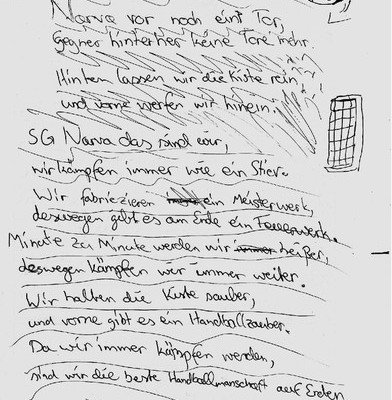 Narva vor noch eint Tor,
Gegner hinterher keine Tore mehr.
Hinten lassen wir die Kiste rein
und vorne werfen wir hinein.
SG Narva das sind wir,
wir kämpfen immer wie ein Stier.
Wir fabriezieren ein Meisterwerk,
deswegen gibt es am Ende ein Feuerwerk.
Minute zu Minute werden wir immer heißer,
deswegen kämpfen wir immer weiter.
Wir halten die Kiste sauber,
und vorne gibt es ein Handballzauber.
Da wir immer kämpfen werden,
sind wir die beste Handballmanschaft auf Erden